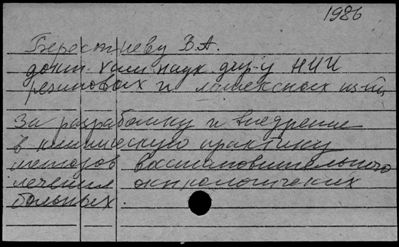 1986
Берестневу В.А.
докт. хим. наук дир-у НИИ
резиновых и латексных изд.
За разработку и внедрение
в клиническую практику
методов восстановительного
лечения онкологических
больных.